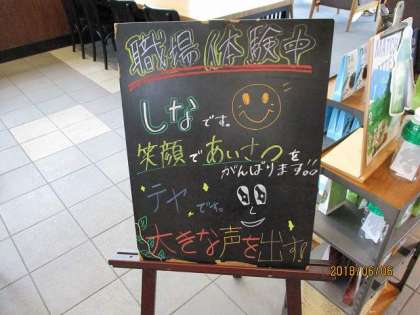 職場体験中
しなです。
笑顔であいさつを
がんばります!!
テヤです。
大きな声を出す!
2018/06/06